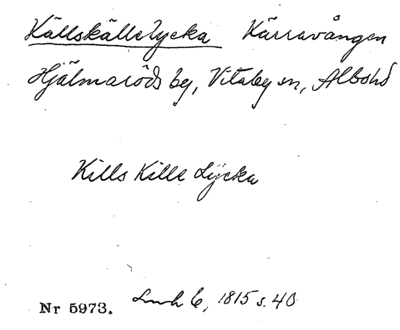 Källskällelycka Kärravången
Hjälmaröds by, Vitaby sn, Albo hd
Kills Kille Lÿcka
Nr 5973. Lmh 6, 1815 s. 40